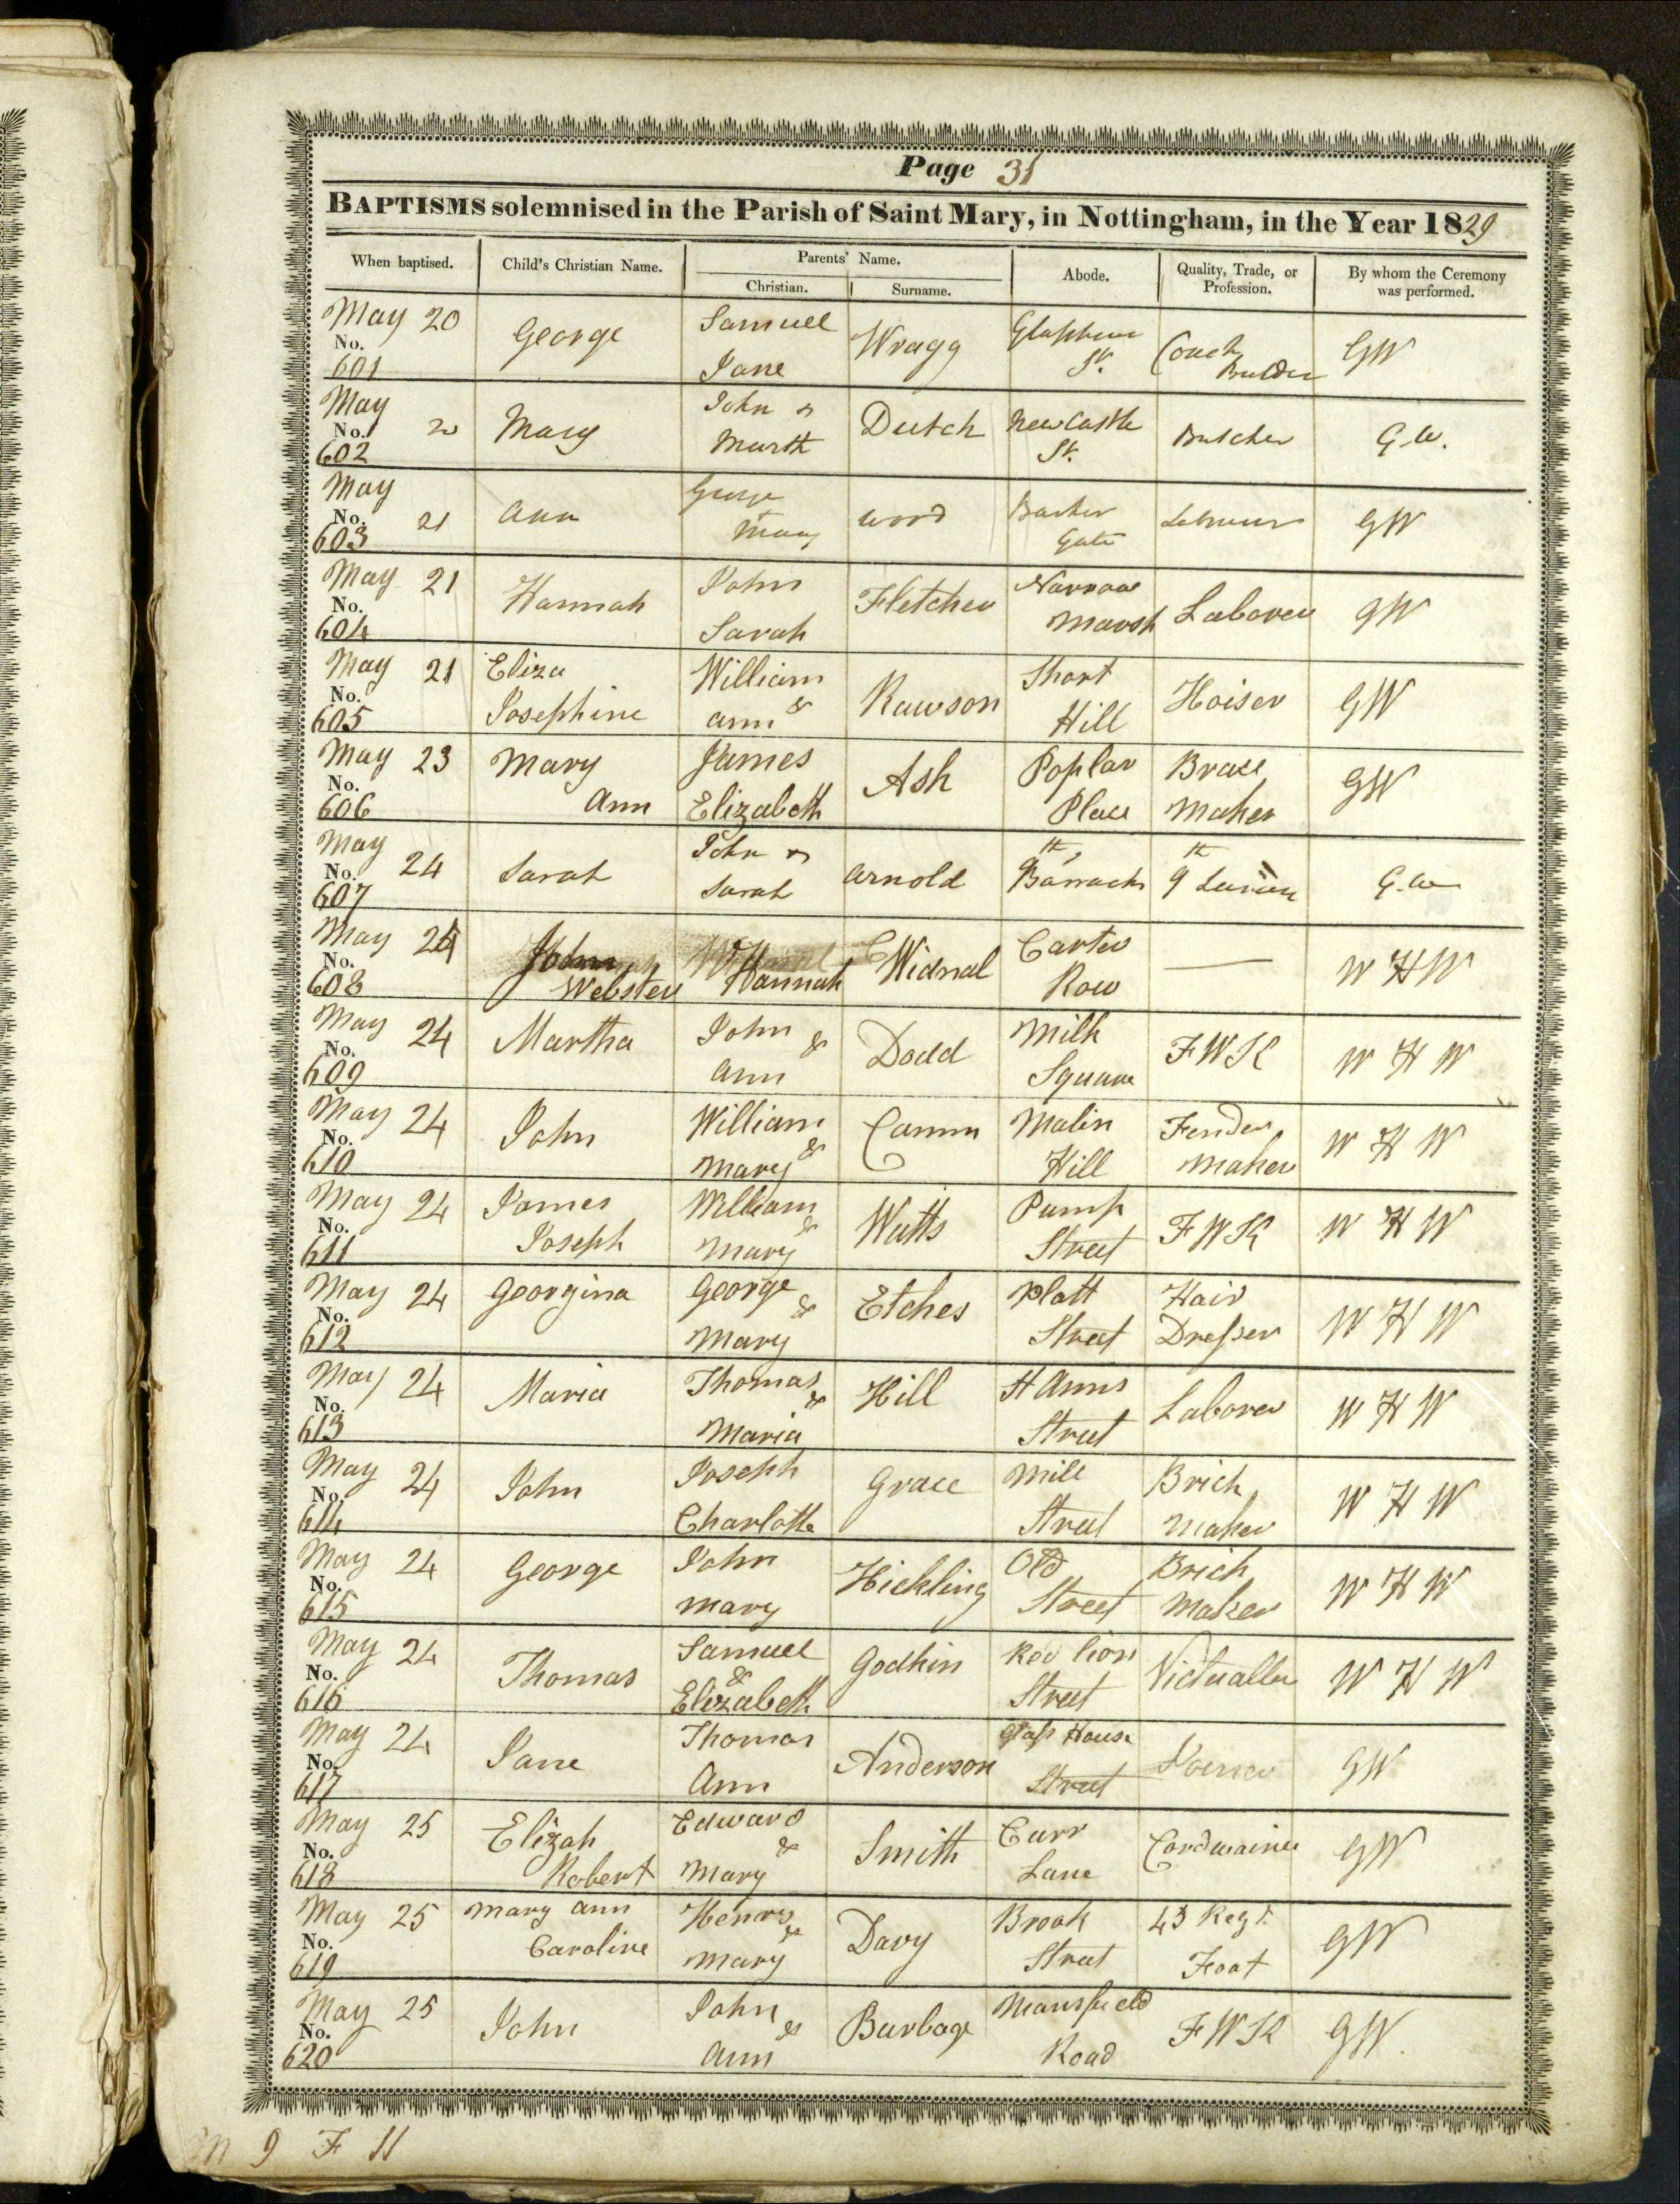 Page 31
BAPTISMS solemnised in the Parish of Saint Mary, in Nottingham, in the Year 1829
When baptised. Child's Christian Name. Parents' Name. Christian. Surname. Abode. Quality, Trade, or Profession. By whom the Ceremony was performed.
May 20 No. 601 George Samuel Jane Wragg Glasshouse St. Coach Builder GW
May 20 No. 602 Mary John & Marth Dutch New Castle St. Butcher G.W.
May 21 No. 603 Ann George & Mary Wood Barker Gate Labourer GW
May 21 No. 604 Hannah John Sarah Fletcher Narrow Marsh Laborer GW
May 21 No. 605 Eliza Josephine William & Ann Rawson Short Hill Hoiser GW
May 23 No. 606 Mary Ann James Elizabeth Ash Poplar Place Brace Maker GW
May 24 No. 607 Sarah John & Sarah Arnold Barracks 9th G.W
May 24 No. 608 Webster Hannah Widnal Carter Row — W H W
May 24 No. 609 Martha John & Ann Dodd Milk Square FWK W H W
May 24 No. 610 John William & Mary Camm Malin Hill Fender Maker W H W
May 24 No. 611 James Joseph William & Mary Watts Pump Street FWK W H W
May 24 No. 612 Georgina George & Mary Etches Platt Street Hair Dresser W H W
May 24 No. 613 Maria Thomas & Maria Hill St Anns Street Laborer W H W
May 24 No. 614 John Joseph Charlotte Grace Mill Street Brick Maker W H W
May 24 No. 615 George John Mary Hickling Old Street Brick Maker W H W
May 24 No. 616 Thomas Samuel & Elizabeth Godkin Red Lion Street Victualler W H W
May 24 No. 617 Jane Thomas Ann Anderson Glass House Street GW
May 25 No. 618 Elizah Robert Edward & Mary Smith Curr Lane Cordwainer GW
May 25 No. 619 Mary Ann Caroline Henry & Mary Davy Brook Street 43 Regt. Foot GW
May 25 No. 620 John John & Ann Burbage Mansfield Road FWK GW.
M 9 F 11